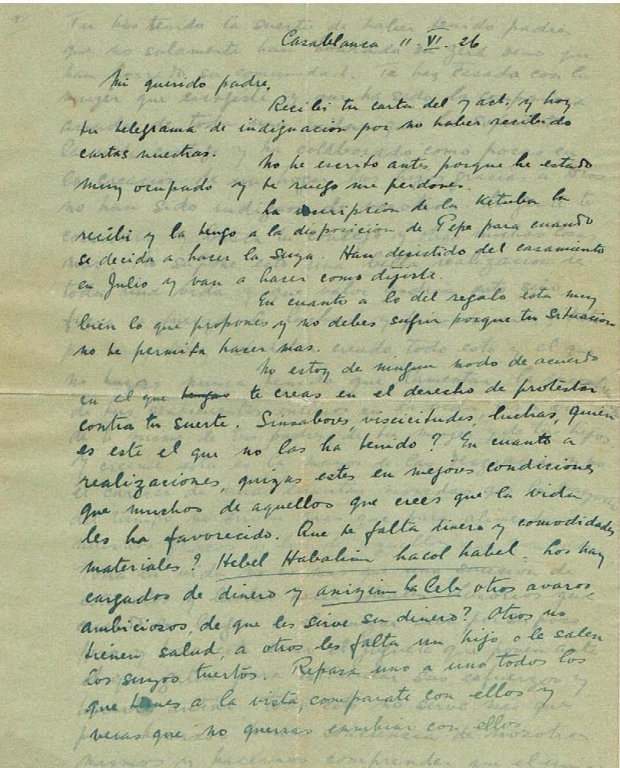 Casablanca 11-VI-26
Mi querido padre,
Recibi tu carta del 7 act. y hoy
tu telegrama de indignacion por no haber recibido
cartas nuestras. No he escrito antes porque he estado
muy ocupado y te ruego me perdones.
La inscripcion de la Ketuba la
recibi y la tengo a la disposicion de Pepe para cuando
se decida a hacer la suya. Han desistido del casamiento
en Julio y van a hacer como dijiste.
En cuanto a lo del regalo esta muy
bien lo que propones y no debes sufrir porque tu situacion
no te permita hacer mas.
No estoy de ningun modo de acuerdo
en el que te creas en el derecho de protestar
contra tu suerte. Sinsabores, viscicitudes, luchas, quien
es este el que no las ha tenido? En cuanto a
realizaciones, quizas estes en mejores condiciones
que muchos de aquellos que crees que la vida
les ha favorecido. Que te falta dinero y comodidades
materiales? Hebel Habalim hacol habel. Los hay
cargados de dinero y otros avaros
ambiciosos, de que les sirve su dinero? Otros no
tienen salud, a otros les falta un hijo, o le salen
los suyos tuertos. Repasa uno a uno todos los
que tienes a la vista, comparate con ellos y
veras que no querras cambiar con ellos